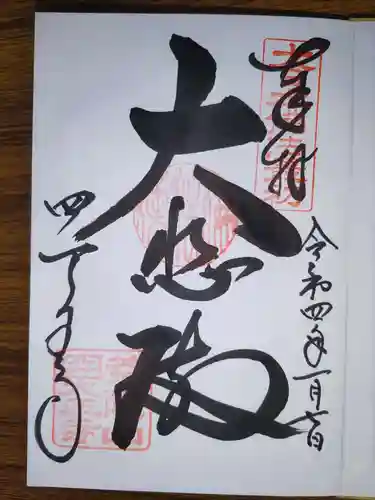 奉拝
令和四年一月七日
大悲殿
四天王寺